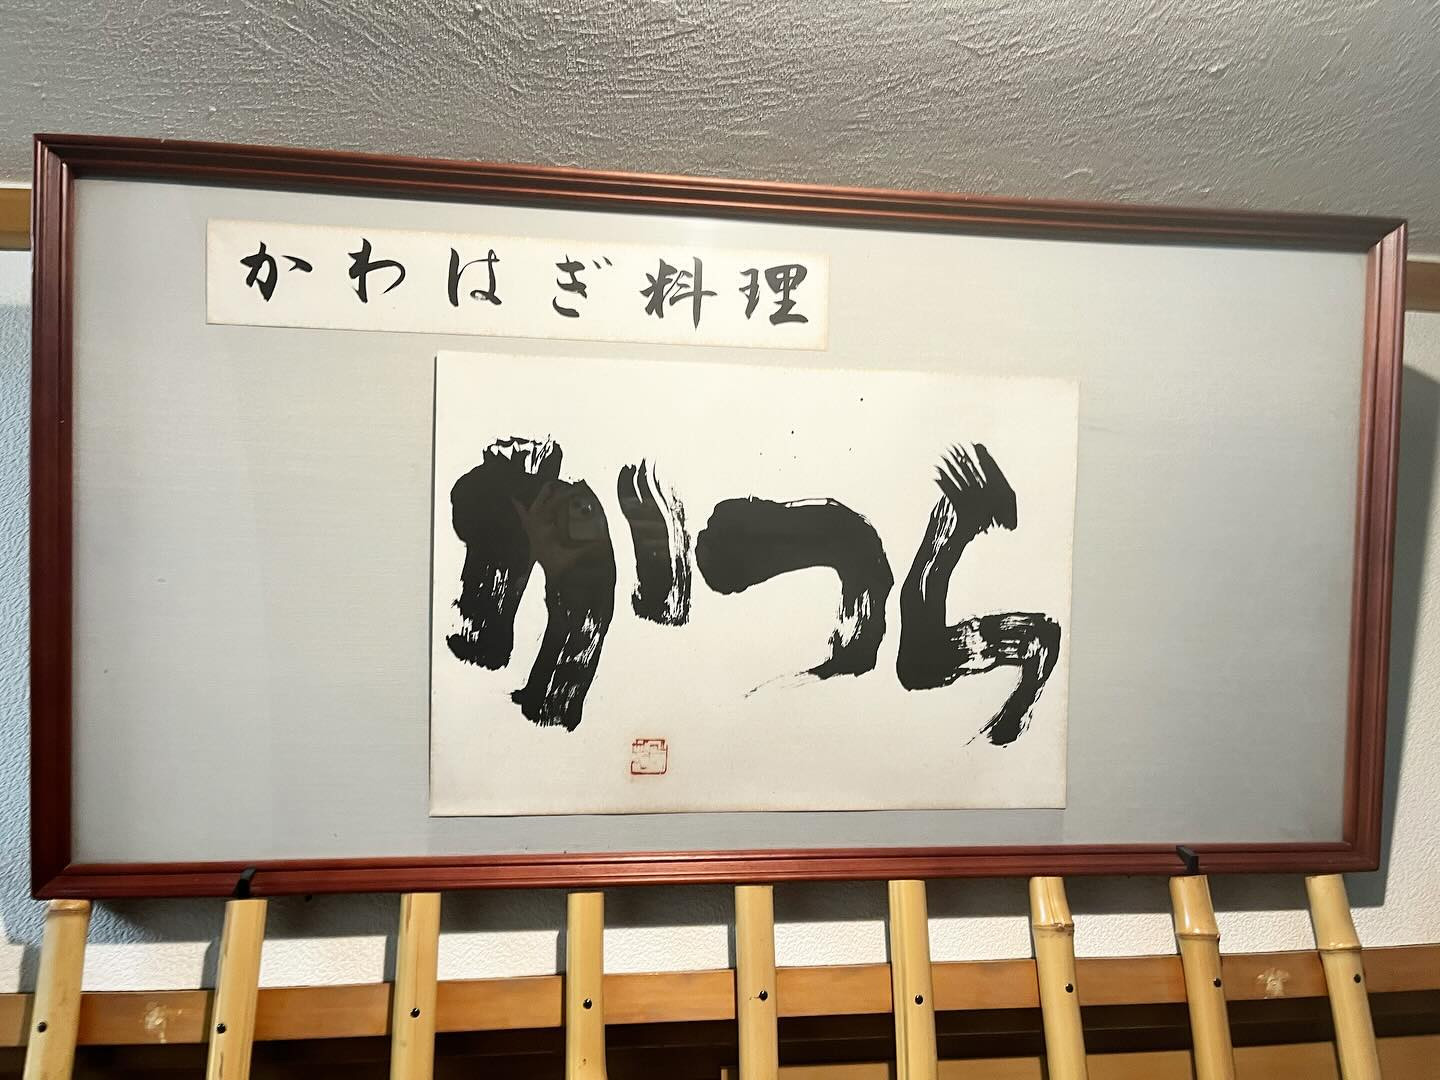 かわはぎ料理
かつら